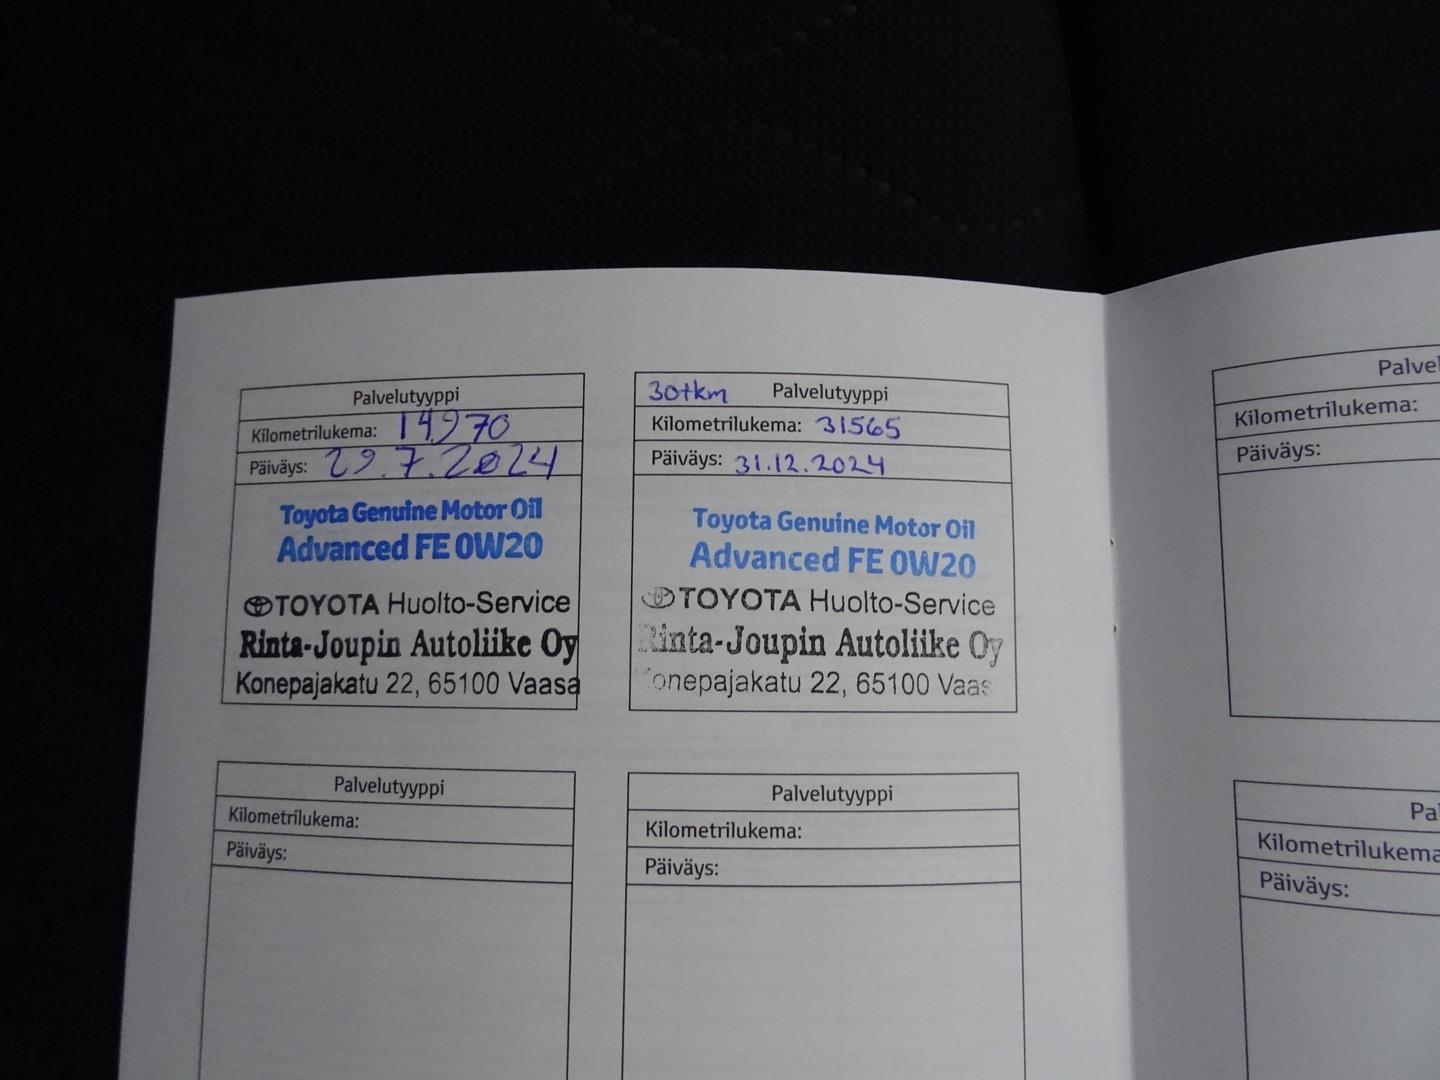 Palvelutyyppi
Kilometrilukema: 14970
Päiväys: 29.7.2024
Toyota Genuine Motor Oil
Advanced FE 0W20
TOYOTA Huolto-Service
Rinta-Joupin Autoliike Oy
Konepajakatu 22, 65100 Vaasa
30tkm Palvelutyyppi
Kilometrilukema: 31565
Päiväys: 31.12.2024
Toyota Genuine Motor Oil
Advanced FE 0W20
TOYOTA Huolto-Service
Rinta-Joupin Autoliike Oy
Konepajakatu 22, 65100 Vaas
Palvelutyyppi
Kilometrilukema:
Päiväys:
Palvelutyyppi
Kilometrilukema:
Päiväys:
Palvel
Kilometrilukema:
Päiväys:
Pa
Kilometrilukema
Päiväys: